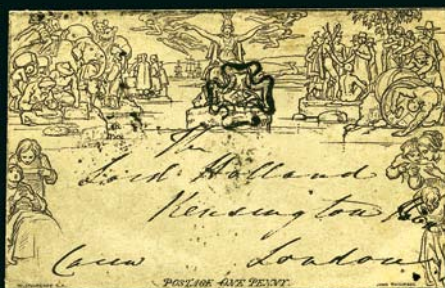 To
Lord Holland
Kensington
London
POSTAGE ONE PENNY.